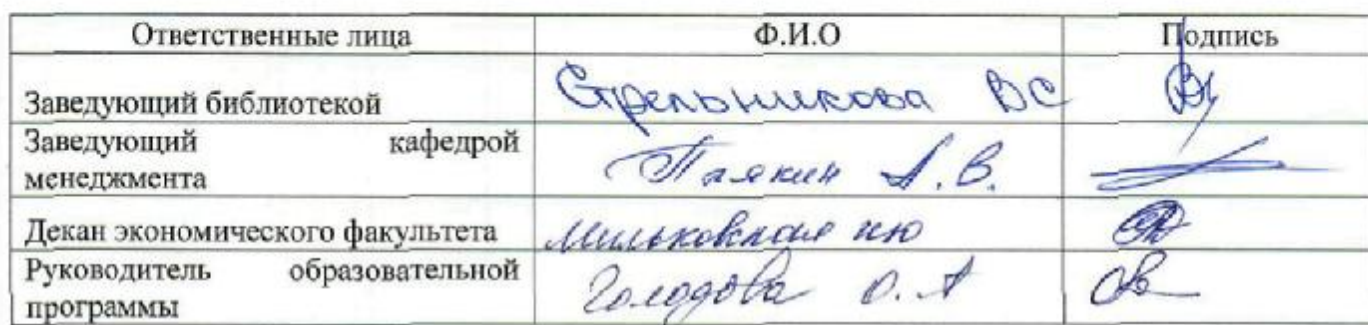 Ответственные лица Ф.И.О Подпись
Заведующий библиотекой Стрельникова ВС
Заведующий кафедрой
менеджмента А.В.
Декан экономического факультета Мильковская ИЮ
Руководитель образовательной
программы Голодова О.А